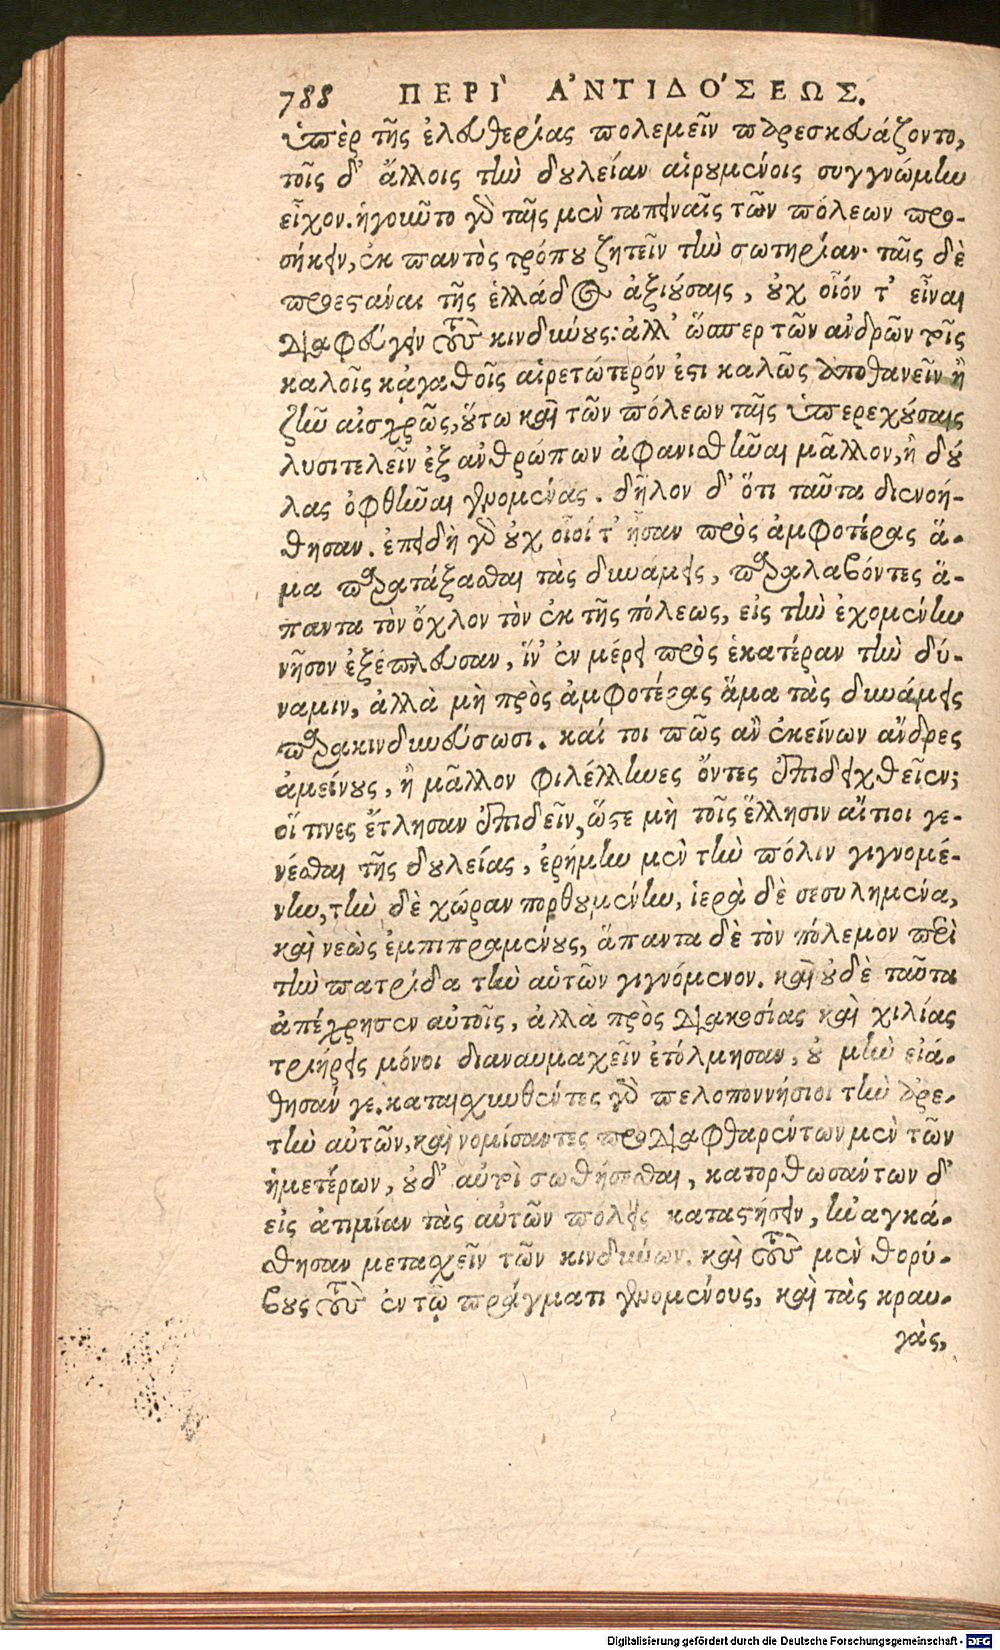 788 ΠΕΡΙ` Α'ΝΤΙΔΟ'ΣΕΩΣ.
ὑπὲρ τῆς ἐλευθερίας πολεμεῖν παρεσκευάζοντο,
τοῖς δ' ἄλλοις τὴν δουλείαν αἱρουμένοις συγγνώμην
εἶχον. ἡγοιῶτο γὸ ταῖς μὲν ταπειναῖς τῶν πόλεων προ-
σήκειν, ἐκ παντὸς τρόπου ζητεῖν τὴν σωτηρίαν· ταῖς δὲ
προεστάναι τῆς ἑλλάδος ἀξιούσαις, οὐχ οἷόν τ' εἶναι
διαφεύγειν τοὺς κινδύνους: ἀλλ' ὥσπερ τῶν ἀνδρῶν τοῖς
καλοῖς κἀγαθοῖς αἱρετώτερόν ἐστι καλῶς ἀποθανεῖν ἢ
ζῆν αἰσχρῶς, οὕτω καὶ τῶν πόλεων ταῖς ὑπερεχούσαις
λυσιτελεῖν ἐξ ἀνθρώπων ἀφανισθῆναι μᾶλλον, ἢ δού
λας ὀφθῆναι γενομένας. δῆλον δ' ὅτι ταῦτα διενοή-
θησαν. ἐπειδὴ γὸ οὐχ οἷοί τ' ἦσαν πρὸς ἀμφοτέρας ἅ-
μα παρατάξασθαι τὰς δυνάμεις, παραλαβόντες ἅ-
παντα τὸν ὄχλον τὸν ἐκ τῆς πόλεως, εἰς τὴν ἐχομένην
νῆσον ἐξέπλευσαν, ἵν' ἐν μέρει πρὸς ἑκατέραν τὴν δύ-
ναμιν, ἀλλὰ μὴ πρὸς ἀμφοτέρας ἅμα τὰς δυνάμεις
παρακινδυνεύσωσι. καί τοι πῶς ἂν ἐκείνων ἄνδρες
ἀμείνους, ἢ μᾶλλον φιλέλληνες ὄντες ἐπιδειχθεῖεν;
οἵ τινες ἔτλησαν ἐπιδεῖν, ὥστε μὴ τοῖς ἕλλησιν αἴτιοι γε-
νέσθαι τῆς δουλείας, ἐρήμην μὲν τὴν πόλιν γιγνομέ-
νην, τὴν δὲ χώραν πορθουμένην, ἱερὰ δὲ σεσυλημένα,
καὶ νεὼς ἐμπιπραμένους, ἅπαντα δὲ τὸν πόλεμον περὶ
τὴν πατρίδα τὴν αὑτῶν γιγνόμενον. καὶ οὐδὲ ταῦτα
ἀπέχρησεν αὐτοῖς, ἀλλὰ πρὸς διακοσίας καὶ χιλίας
τριήρεις μόνοι διαναυμαχεῖν ἐτόλμησαν, οὐ μὴν εἰά-
θησαν γε. καταισχυνθέντες γὸ πελοποννήσιοι τὴν ἀρε-
τὴν αὐτῶν, καὶ νομίσαντες προδιαφθαρέντων μὲν τῶν
ἡμετέρων, οὐδ' αὐτοὶ σωθήσεσθαι, κατορθωσάντων δ'
εἰς ἀτιμίαν τὰς αὑτῶν πόλεις καταστήσειν, ἠναγκά-
θησαν μετασχεῖν τῶν κινδύνων. καὶ τοὺς μὲν θορύ-
βους τοὺς ἐν τῷ πράγματι γενομένους, καὶ τὰς κραυ-
γὰς,
Digitalisierung gefördert durch die Deutsche Forschungsgemeinschaft - DFG